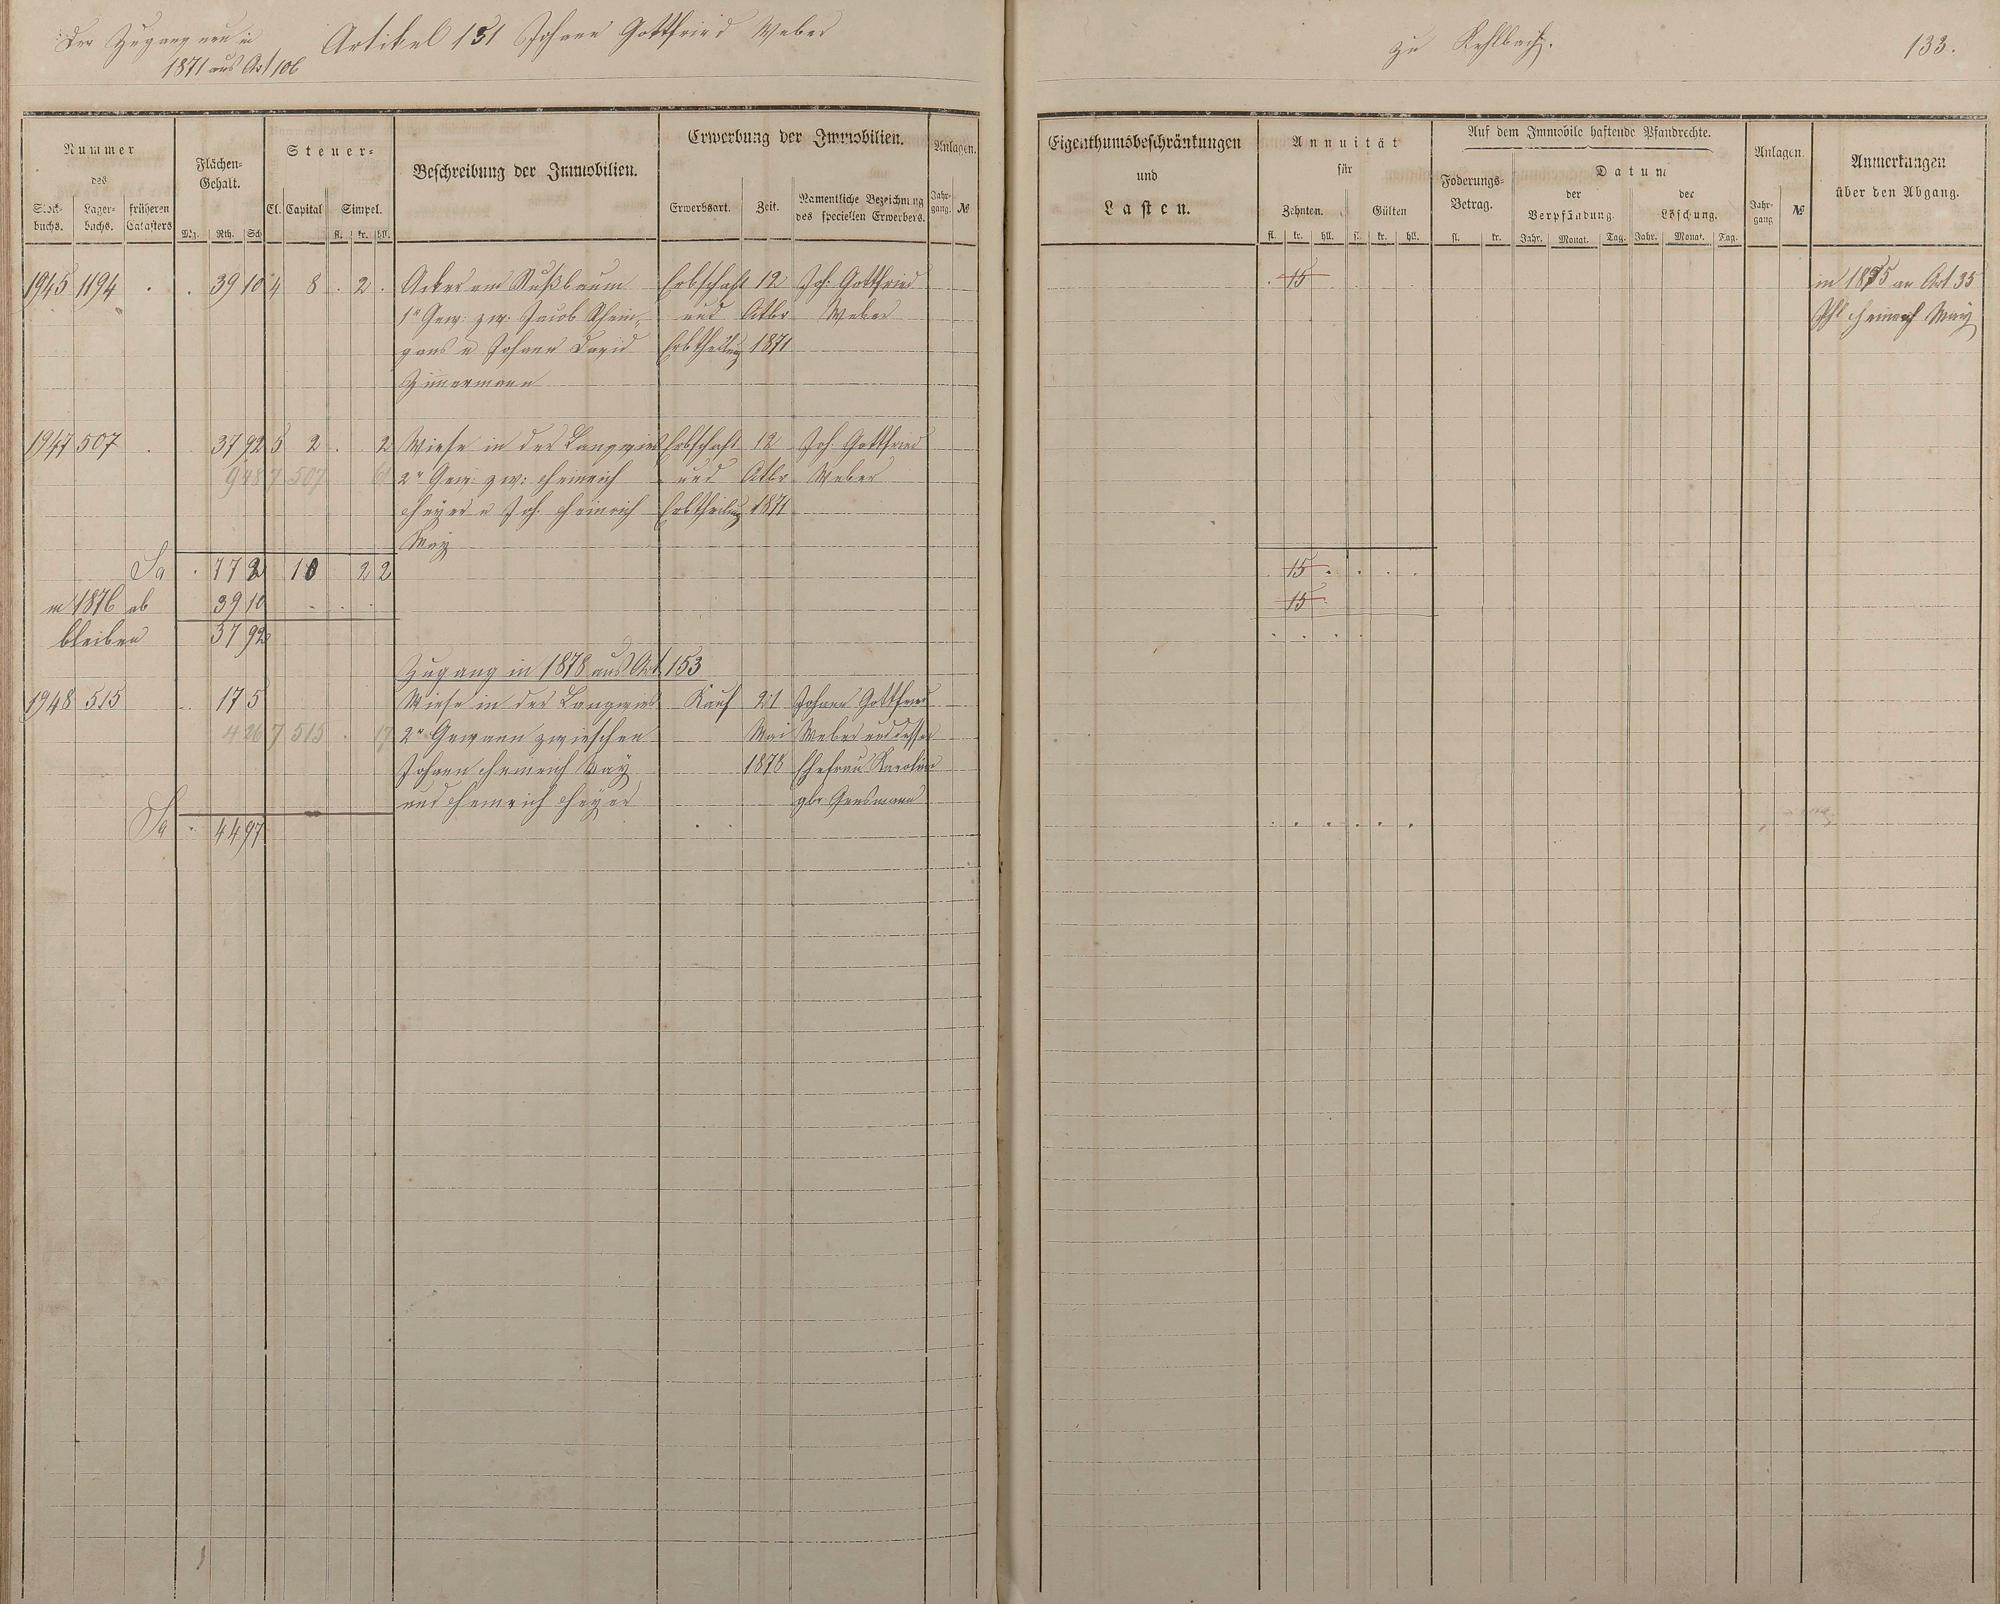 Der Zugang neu in
1871 aus Art 106
Artikel 131 Johann Gottfried Weber
zu Kehlbach.
133.
Nummer
des
Stock-
buchs.
Lager-
buchs.
früheren
Catasters
Flächen-
Gehalt.
Mg. Rth. Sch
Steuer-
Cl. Capital Simpel.
fl. kr. hll.
Beschreibung der Immobilien.
Erwerbung der Immobilien.
Erwerbsart. Zeit. Namentliche Bezeichnung
des speciellen Erwerbers.
Anlagen.
Jahr-
gang. №
Eigenthumsbeschränkungen
und
Lasten.
Annuität
für
Zehnten. Gülten
fl. kr. hll. fl. kr. hll.
Auf dem Immobile haftende Pfandrechte.
Foderungs-
Betrag.
fl. kr.
Datum
der
Verpfändung.
der
Löschung.
Jahr. Monat. Tag. Jahr. Monat. Tag.
Anlagen.
Jahr-
gang №
Anmerkungen
über den Abgang.
1945 1194 . . 39 10 4 8 . 2 . Acker am Nußbaum Erbschaft 12 Joh: Gottfried . 15 in 1875 an Art 35
1r Gew: zw: Jacob Rhein- und Octbr Weber Heinrich May
gans u Johann David Erbtheilung 1871
Zimmermann
1947 507 . 37 92 5 2 . 2 Wiese in der Langwies Erbschaft 12 Joh. Gottfried
9 48 7 507 2r Gew: zw: Heinrich und Octbr Weber
Heyer u Joh. Heinrich Erbtheilung 1871
May
Sa . 77 2 10 2 2 . 15 . . . .
in 1876 ab 39 10 15
bleiben 37 92
Zugang in 1878 aus Art 153
1948 515 . 17 5 Wiese in der Langwies Kauf 21 Johann Gottfried
4 26 7 515 . 17 2r Gewann zwischen Mai Weber und dessen
Johann Heinrich May 1878 Ehefrau Karoline
und Heinrich Heyer gbr Gensmann
Sa . 44 97